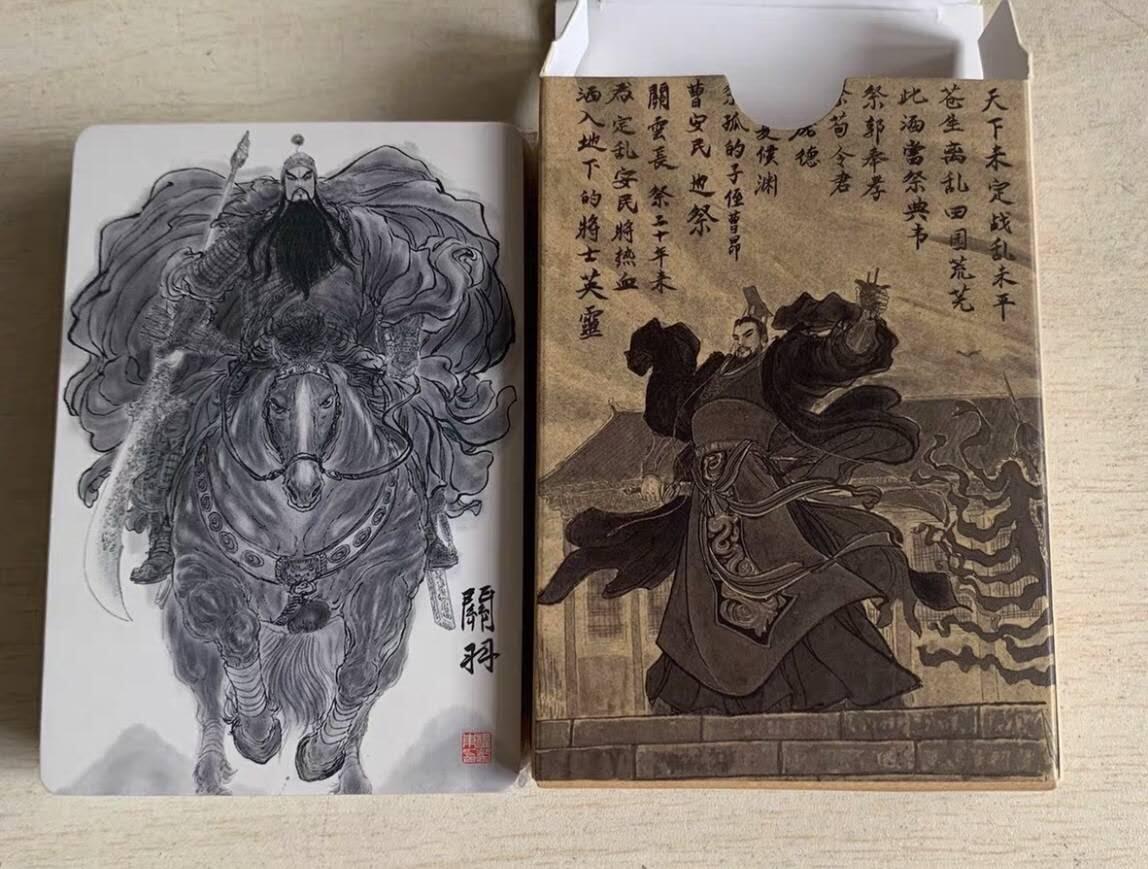 關羽
天下未定战乱未平
苍生离乱田园荒芜
此酒當祭典韦
祭郭奉孝
荀令君
德
侯渊
孤的子侄曹昂
曹安民 也祭
關雲長 祭二十年来
定乱安民將热血
洒入地下的將士英靈